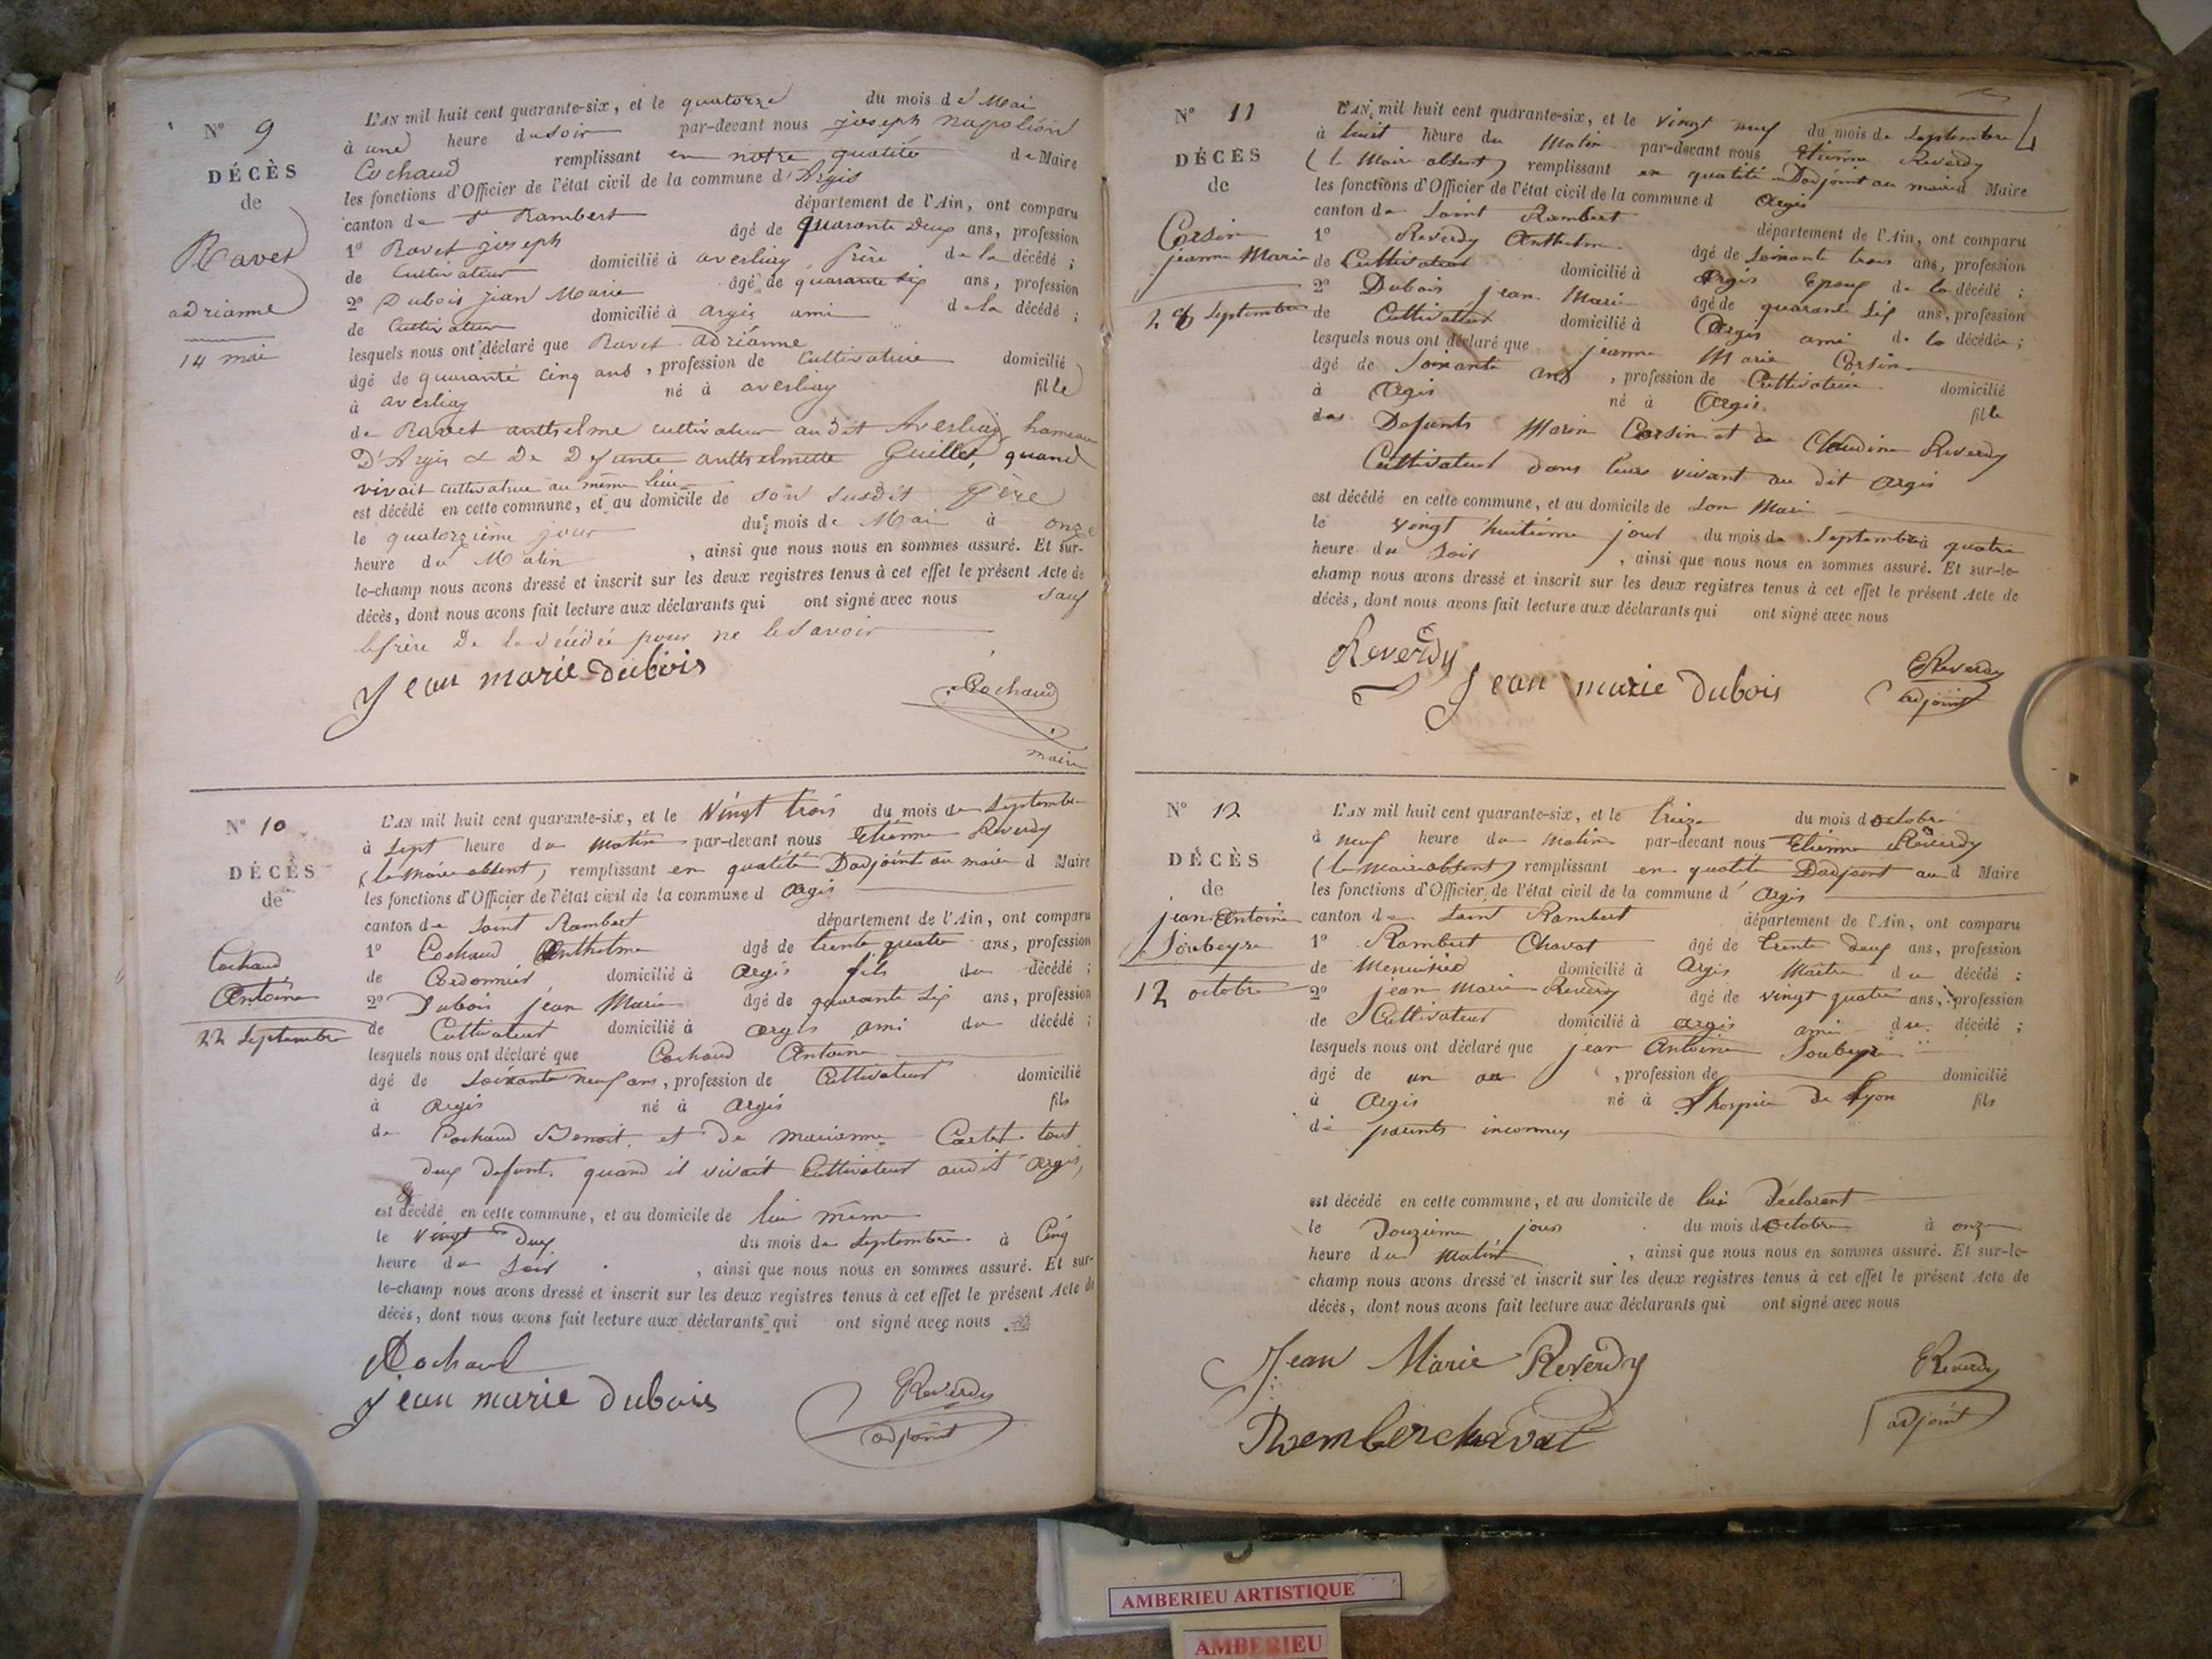 N° 9
DÉCÈS
de
Ravet
adrianne
14 mai
L'AN mil huit cent quarante-six, et le quatorze du mois de Mai
à une heure du soir par-devant nous joseph napoléon
Cochaud remplissant en notre qualité de Maire
les fonctions d'Officier de l'état civil de la commune d'Argis
canton de St Rambert département de l'Ain, ont comparu
1° Ravet joseph âgé de quarante deux ans, profession
de Cultivateur domicilié à averliay frère de la décédé ;
2° Dubois jean Marie âgé de quarante six ans, profession
de Cultivateur domicilié à argis ami de la décédé ;
lesquels nous ont déclaré que Ravet adrianne
âgé de quarante cinq ans, profession de cultivatrice domicilié
à averliay né à averliay fille
de Ravet anthelme cultivateur au dit Averliay, hameau
D'Argis & De Defunte anthelmette Guillet, quand
vivait cultivatrice au même lieu
est décédé en cette commune, et au domicile de son susdit Père
le quatorzième jour du mois de Mai à onze
heure du Matin, ainsi que nous nous en sommes assuré. Et sur-
le-champ nous avons dressé et inscrit sur les deux registres tenus à cet effet le présent Acte de
décès, dont nous avons fait lecture aux déclarants qui ont signé avec nous sauf
le frère De la décédée pour ne le savoir
Jean marie Dubois
Cochaud
maire
N° 10
DÉCÈS
de
Cochaud
Antoine
22 Septembre
L'AN mil huit cent quarante-six, et le Vingt trois du mois de Septembre
à Sept heure du Matin par-devant nous Etienne Reverdy
(le Maire absent) remplissant en qualité Dadjoint au maire d Maire
les fonctions d'Officier de l'état civil de la commune d Argis
canton de Saint Rambert département de l'Ain, ont comparu
1° Cochaud Anthelme âgé de trente quatre ans, profession
de Cordonnier domicilié à Argis fils du décédé ;
2° Dubois jean Marie âgé de quarante Six ans, profession
de Cultivateur domicilié à argis ami du décédé ;
lesquels nous ont déclaré que Cochaud Antoine
âgé de Soixante neuf ans, profession de Cultivateur domicilié
à Argis né à Argis fils
de Cochaud Benoit et De marianne Cartet tout
deux defunts quand il vivait Cultivateur audit Argis,
est décédé en cette commune, et au domicile de lui même
le Vingt Deux du mois de Septembre à Cinq
heure du Soir, ainsi que nous nous en sommes assuré. Et sur-
le-champ nous avons dressé et inscrit sur les deux registres tenus à cet effet le présent Acte de
décès, dont nous avons fait lecture aux déclarants qui ont signé avec nous
Cochaud
Jean marie Dubois
EReverdy
adjoint
N° 11
DÉCÈS
de
Corsin
jeanne Marie
28 Septembre
L'AN mil huit cent quarante-six, et le vingt neuf du mois de Septembre
à huit heure du Matin par-devant nous Etienne Reverdy
(le Maire absent) remplissant en qualité Dadjoint au maire d Maire
les fonctions d'Officier de l'état civil de la commune d Argis
canton de Saint Rambert département de l'Ain, ont comparu
1° Reverdy Anthelme âgé de Soixante trois ans, profession
de Cultivateur domicilié à Argis Epoux de la décédé ;
2° Dubois jean Marie âgé de quarante Six ans, profession
de Cultivateur domicilié à Argis ami de la décédée ;
lesquels nous ont déclaré que jeanne Marie Corsin
âgé de Soixante ans, profession de Cultivatrice domicilié
à Argis né à Argis fille
des Defunts Marin Corsin et de Claudine Reverdy
Cultivateurs dans leurs vivant au dit Argis
est décédé en cette commune, et au domicile de Son Mari
le vingt huitieme jour du mois de Septembre à quatre
heure du Soir, ainsi que nous nous en sommes assuré. Et sur-le-
champ nous avons dressé et inscrit sur les deux registres tenus à cet effet le présent Acte de
décès, dont nous avons fait lecture aux déclarants qui ont signé avec nous
Reverdy
Jean marie Dubois
EReverdy
adjoint
N° 12
DÉCÈS
de
jean Antoine
Soubeyre
12 octobre
L'AN mil huit cent quarante-six, et le treize du mois d octobre
à neuf heure du Matin par-devant nous Etienne Reverdy
(le Maire absent) remplissant en qualité Dadjoint au d Maire
les fonctions d'Officier de l'état civil de la commune d'Argis
canton de Saint Rambert département de l'Ain, ont comparu
1° Rambert Chavat âgé de trente deux ans, profession
de Menuisier domicilié à Argis Maitre du décédé ;
2° jean Marie Reverdy âgé de vingt quatre ans, profession
de Cultivateur domicilié à argis ami du décédé ;
lesquels nous ont déclaré que jean Antoine Soubeyre
âgé de un an, profession de domicilié
à Argis né à Lhospice De Lyon fils
de parents inconnus
est décédé en cette commune, et au domicile de lui Déclarent
le Douzieme jour du mois d octobre à onze
heure du matin, ainsi que nous nous en sommes assuré. Et sur-le-
champ nous avons dressé et inscrit sur les deux registres tenus à cet effet le présent Acte de
décès, dont nous avons fait lecture aux déclarants qui ont signé avec nous
Jean Marie Reverdy
EReverdy
adjoint
Ramberchavat
AMBERIEU ARTISTIQUE
AMBERIEU